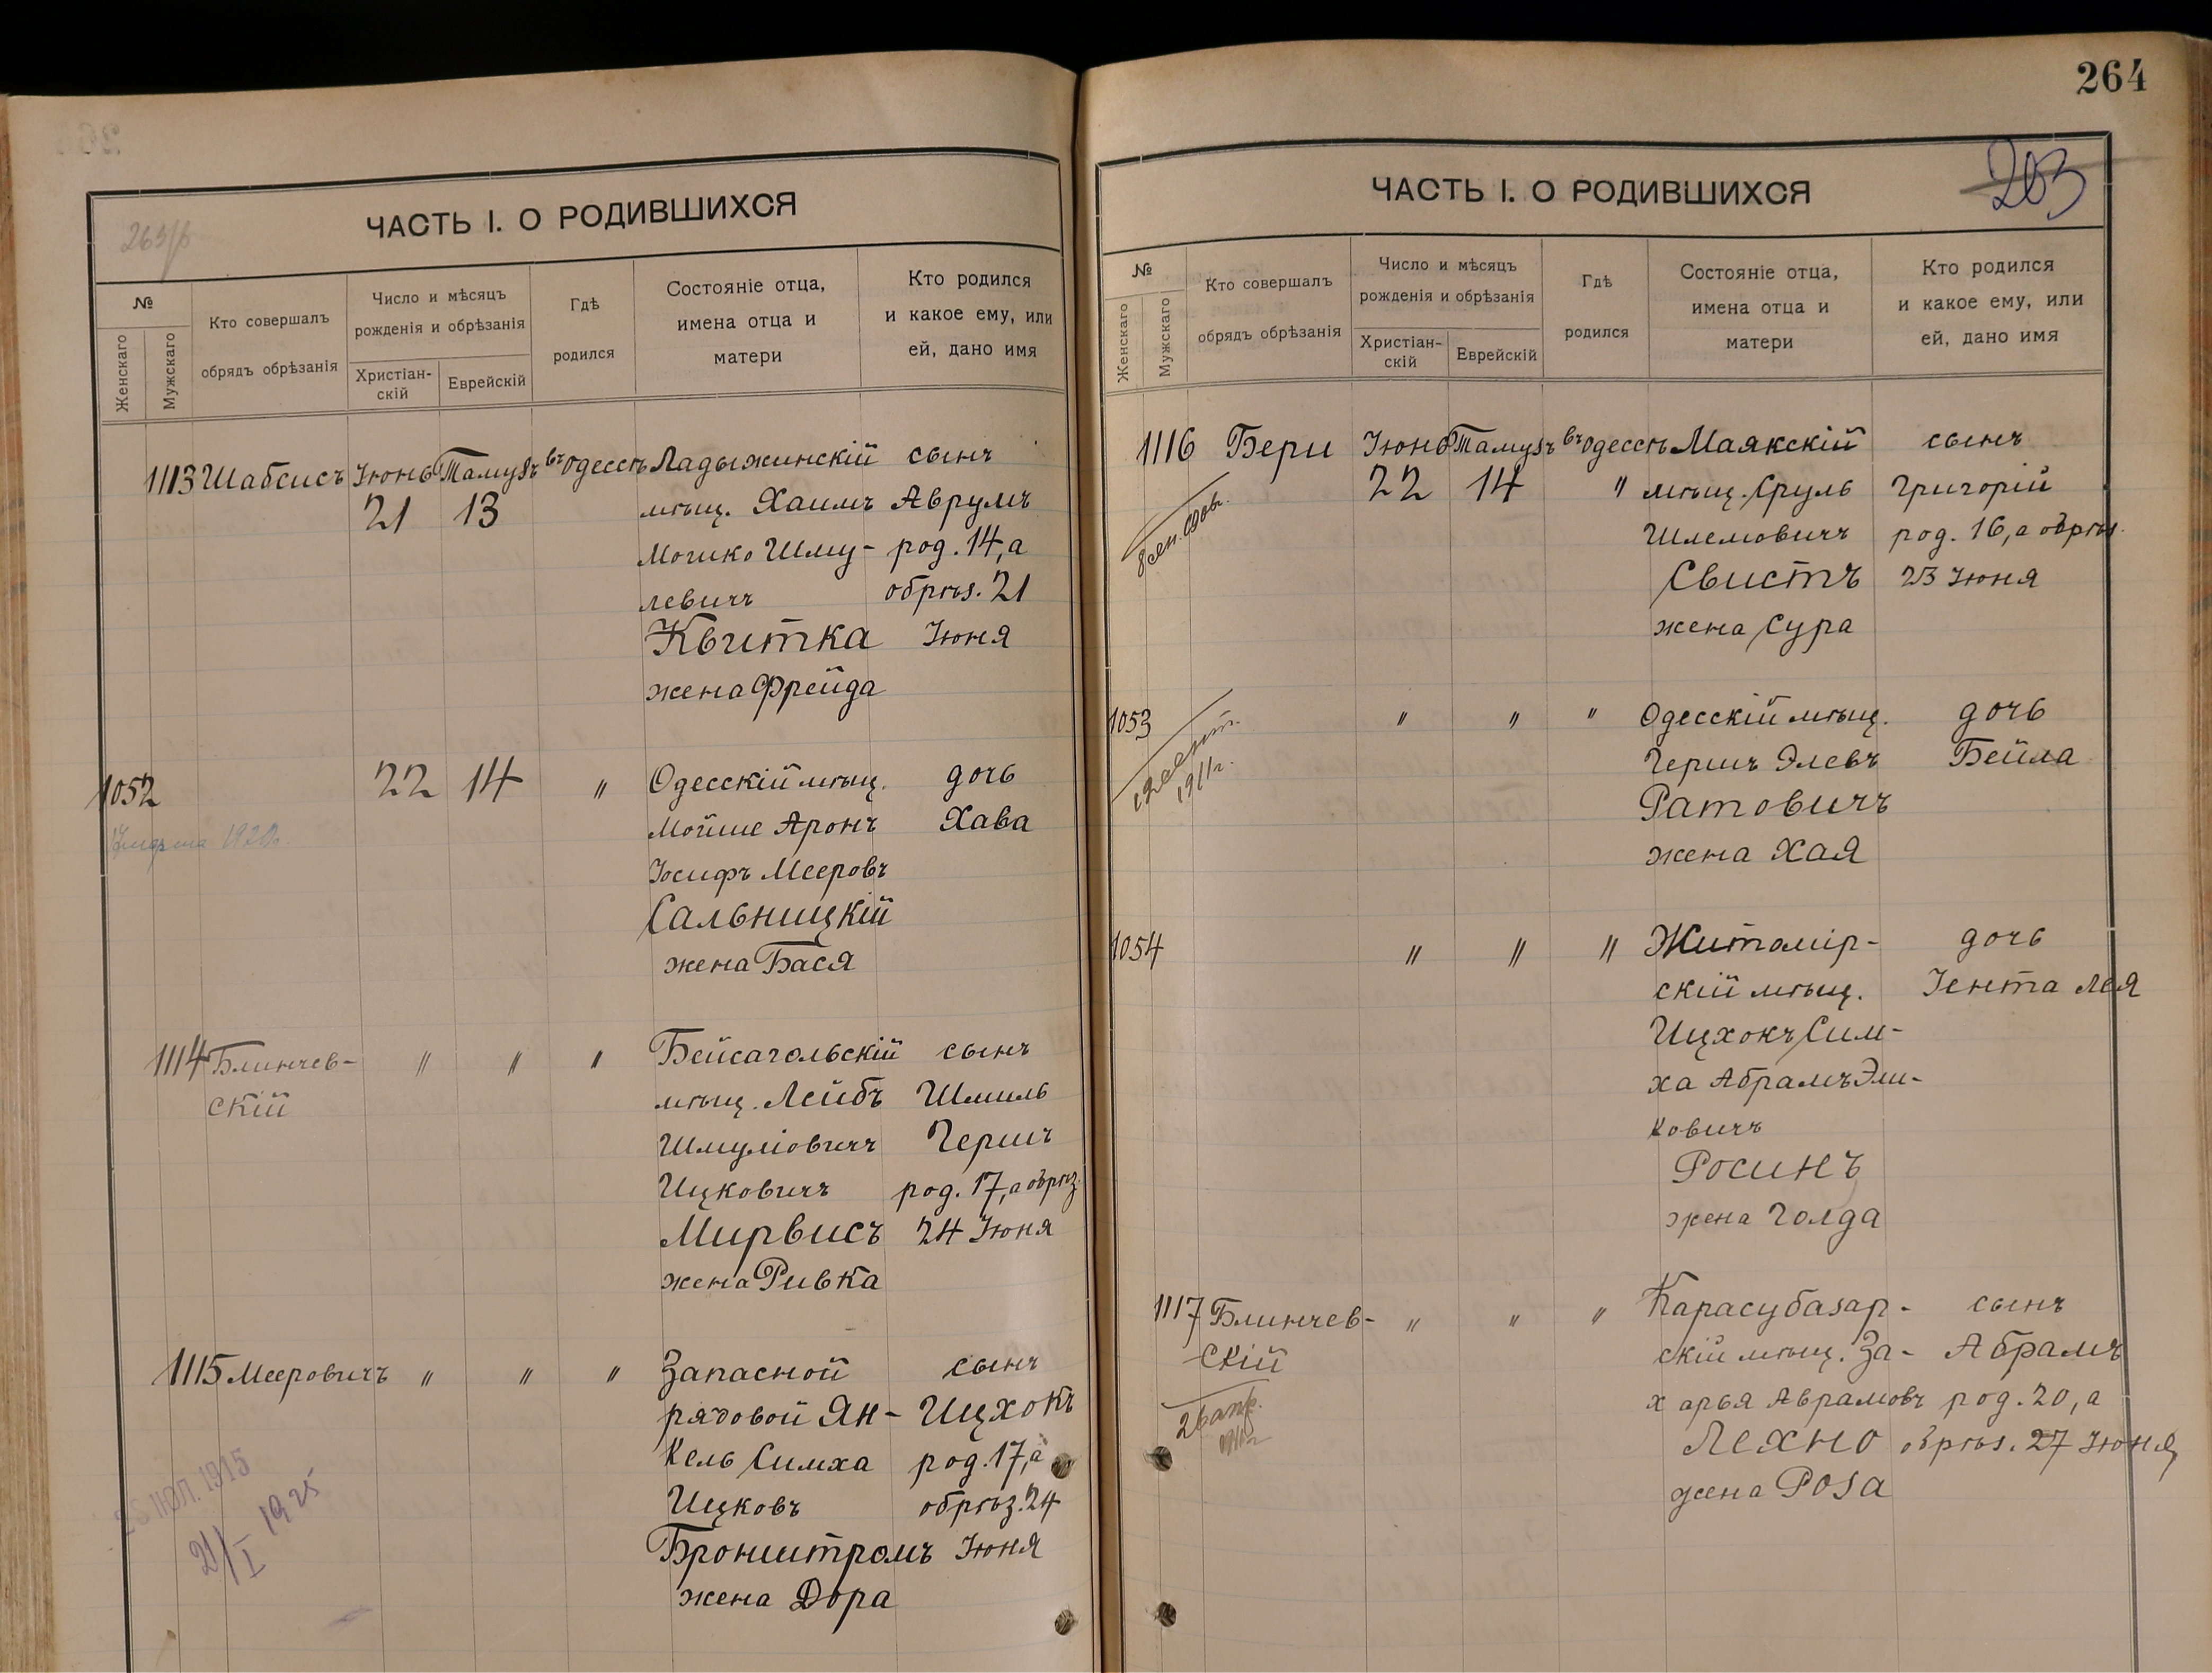 263/b
ЧАСТЬ I. О РОДИВШИХСЯ
№
Женскаго
Мужскаго
Кто совершалъ
обрядъ обрѣзанія
Число и мѣсяцъ
рожденія и обрѣзанія
Христіан-
скій
Еврейскій
Гдѣ
родился
Состояніе отца,
имена отца и
матери
Кто родился
и какое ему, или
ей, дано имя
1113 Шабсисъ Іюнь Тамузъ въ Одессѣ Ладыжинскій сынъ
21 13 мѣщ. Хаимъ Аврумъ
Мошко Шму- род. 14, а
левичъ обрѣз. 21
Квитка Іюня
жена Фрейда
1052 22 14 " Одесскій мѣщ. дочь
Мойше Аронъ Хава
Іосифъ Мееровъ
Сальницкій
жена Бася
1114 Блинчев- " " " Бейсагольскій сынъ
скій мѣщ. Лейбъ Шмиль
Шмуліовичъ Гершъ
Ицковичъ род. 17, а обрѣз.
Мирвисъ 24 Іюня
жена Ривка
1115 Мееровичъ " " " Запасной сынъ
рядовой Ян- Ицхокъ
кель Симха род. 17, а
Ицковъ обрѣз. 24
Бронштромъ Іюня
жена Дора
ІЮЛ. 1915
21/I 1925
264
203
ЧАСТЬ I. О РОДИВШИХСЯ
№
Женскаго
Мужскаго
Кто совершалъ
обрядъ обрѣзанія
Число и мѣсяцъ
рожденія и обрѣзанія
Христіан-
скій
Еврейскій
Гдѣ
родился
Состояніе отца,
имена отца и
матери
Кто родился
и какое ему, или
ей, дано имя
1116 Бери Іюнь Тамузъ въ Одессѣ Маякскій сынъ
22 14 " мѣщ. Сруль Григорій
Шлемовичъ род. 16, а обрѣз.
Свистъ 23 Іюня
жена Сура
1053 " " " Одесскій мѣщ. дочь
Гершъ Элевъ Бейла
1911 г.
Ратовичъ
жена Хая
1054 " " " Житомір- дочь
скій мѣщ. Іента Лея
Ицхокъ Сим-
ха Абрамъ Эли-
ковичъ
Росинъ
жена Голда
1117 Блинчев- " " " Карасубазар- сынъ
скій скій мѣщ. За- Абрамъ
26 апр. харья Аврамовъ род. 20, а
Лехно обрѣз. 27 Іюня
жена Роза